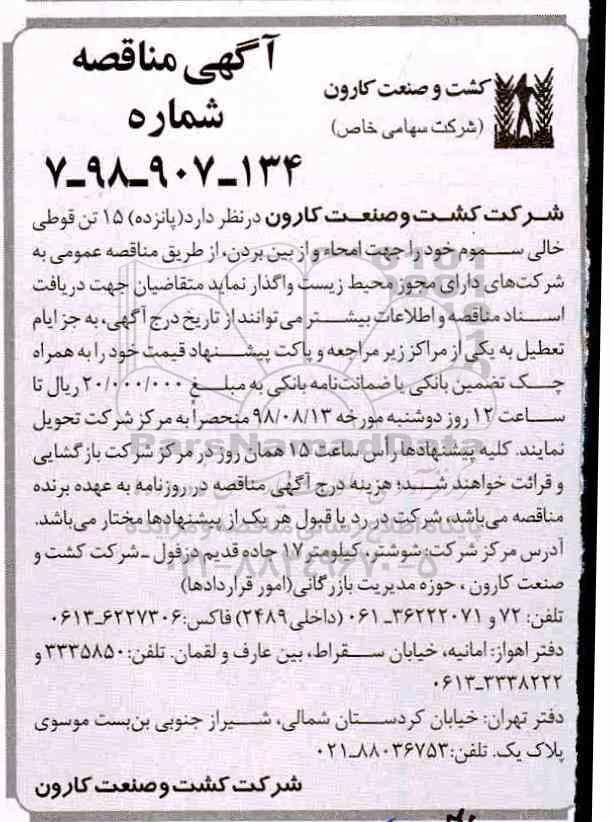 آگهی مناقصه
شماره
۷ـ۹۸ـ۹۰۷ـ۱۳۴
کشت و صنعت کارون
(شرکت سهامی خاص)
شرکت کشت و صنعت کارون در نظر دارد (پانزده) ۱۵ تن قوطی
خالی سموم خود را جهت امحاء و از بین بردن، از طریق مناقصه عمومی به
شرکت‌های دارای مجوز محیط زیست واگذار نماید متقاضیان جهت دریافت
اسناد مناقصه و اطلاعات بیشتر می‌توانند از تاریخ درج آگهی، به جز ایام
تعطیل به یکی از مراکز زیر مراجعه و پاکت پیشنهاد قیمت خود را به همراه
چک تضمین بانکی یا ضمانت‌نامه بانکی به مبلغ ۲۰/۰۰۰/۰۰۰ ریال تا
ساعت ۱۲ روز دوشنبه مورخه ۹۸/۰۸/۱۳ منحصراً به مرکز شرکت تحویل
نمایند. کلیه پیشنهادها رأس ساعت ۱۵ همان روز در مرکز شرکت بازگشایی
و قرائت خواهند شد؛ هزینه درج آگهی مناقصه در روزنامه به عهده برنده
مناقصه می‌باشد، شرکت در رد یا قبول هر یک از پیشنهادها مختار می‌باشد.
آدرس مرکز شرکت: شوشتر، کیلومتر ۱۷ جاده قدیم دزفول ـ شرکت کشت و
صنعت کارون ، حوزه مدیریت بازرگانی (امور قراردادها)
تلفن: ۷۲ و ۳۶۲۲۲۰۷۱ـ۰۶۱ (داخلی ۲۴۸۹) فاکس: ۶۲۲۷۳۰۶ـ۰۶۱۳
دفتر اهواز: امانیه، خیابان سقراط، بین عارف و لقمان. تلفن: ۳۳۳۵۸۵۰ و
۳۳۳۸۲۲۲ـ۰۶۱۳
دفتر تهران: خیابان کردستان شمالی، شیراز جنوبی بن‌بست موسوی
پلاک یک. تلفن: ۸۸۰۳۶۷۵۳ـ۰۲۱
شرکت کشت و صنعت کارون
ParsNamadData
۰۲۱-۸۸۳۴۹۶۷۰-۵